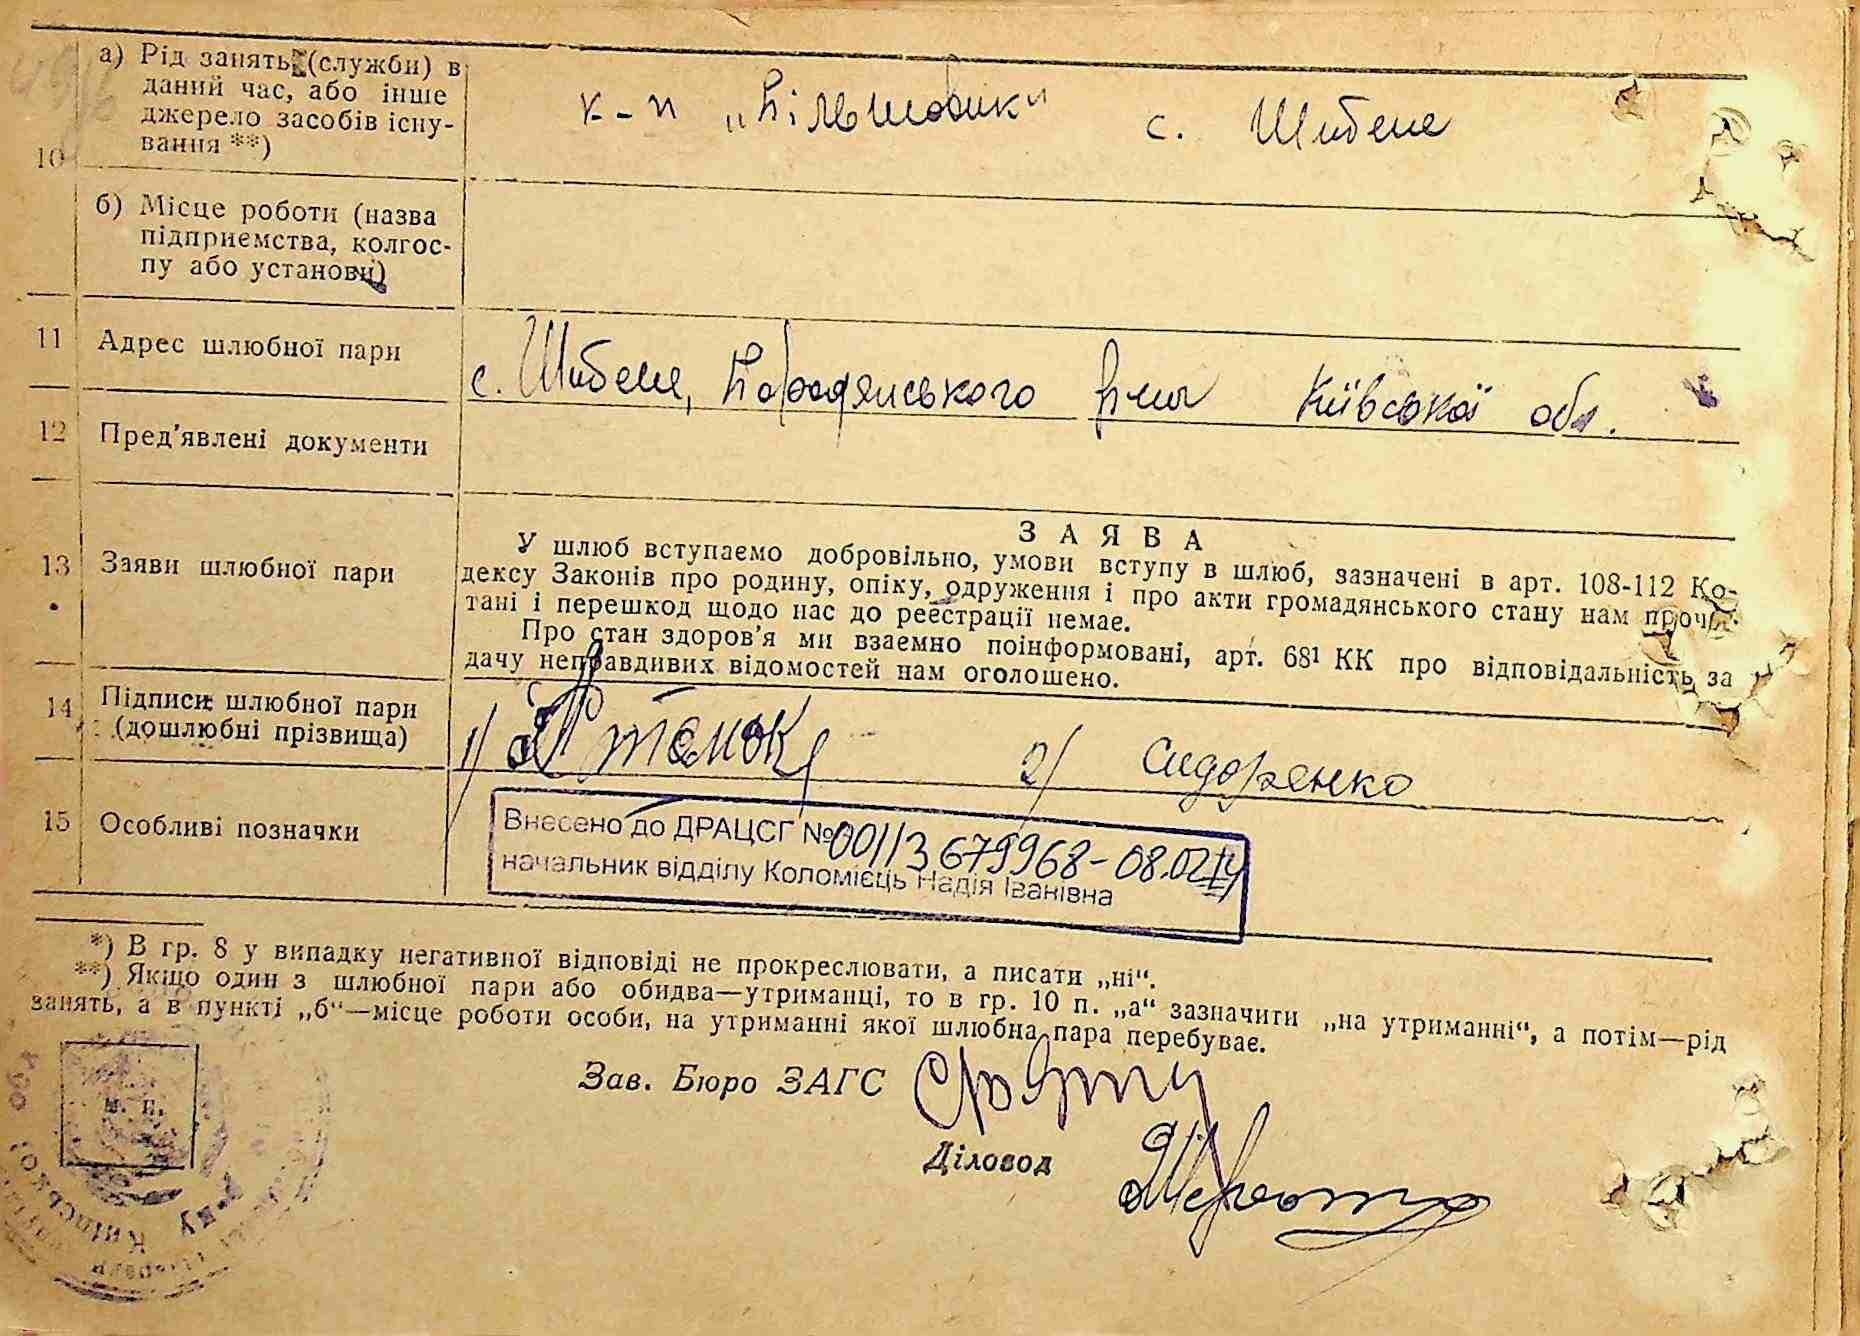 а) Рід занять (служби) в
даний час, або інше
джерело засобів існу-
вання **)
10
к-п „Більшовик“ с. Шибене
б) Місце роботи (назва
підприємства, колгос-
пу або установи)
11 Адрес шлюбної пари
с. Шибене, Бородянського р-ну Київської обл.
12 Пред'явлені документи
13 Заяви шлюбної пари
ЗАЯВА
У шлюб вступаємо добровільно, умови вступу в шлюб, зазначені в арт. 108-112 Ко-
дексу Законів про родину, опіку, одруження і про акти громадянського стану нам прочи-
тані і перешкод щодо нас до реєстрації немає.
Про стан здоров'я ми взаємно поінформовані, арт. 68¹ КК про відповідальність за
дачу неправдивих відомостей нам оголошено.
14 Підписи шлюбної пари
(дошлюбні прізвища)
1) 2) Сидоренко
15 Особливі позначки
Внесено до ДРАЦСГ № 00113679968-08.02.
начальник відділу Коломієць Надія Іванівна
*) В гр. 8 у випадку негативної відповіді не прокреслювати, а писати „ні“.
**) Якщо один з шлюбної пари або обидва—утриманці, то в гр. 10 п. „а“ зазначити „на утриманні“, а потім—рід
занять, а в пункті „б“—місце роботи особи, на утриманні якої шлюбна пара перебуває.
Зав. Бюро ЗАГС
м. п.
Діловод